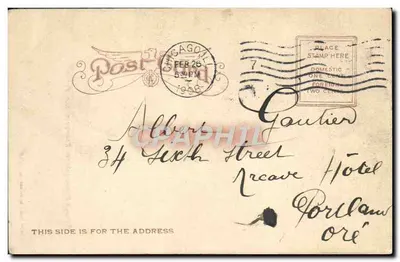 Post Card
CHICAGO, ILL.
FEB 26
8 30 PM
7
PLACE
STAMP HERE
DOMESTIC
ONE CENT
FOREIGN
TWO CENTS
Albert Gautier
34 Sixth Street
Arcave Hôtel
Portland
Oré
CPHRAPHIL
THIS SIDE IS FOR THE ADDRESS